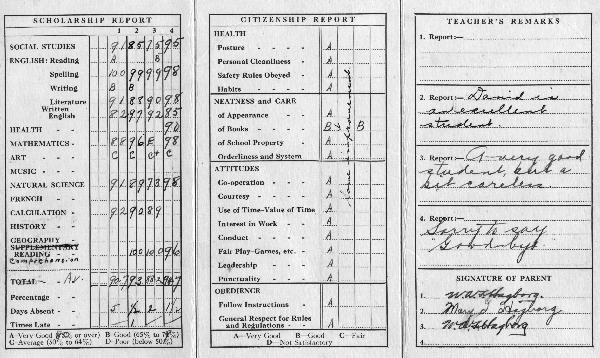 SCHOLARSHIP REPORT
1 2 3 4
SOCIAL STUDIES 91 85 75 95
ENGLISH: Reading A B
Spelling 100 99 99 98
Writing B B
Literature 91 88 90 98
Written English 82 97 92 85
HEALTH 90
MATHEMATICS 88 96 E 98
ART C C C+ C
MUSIC
NATURAL SCIENCE 91 89 73 98
FRENCH
CALCULATION 92 90 89
HISTORY
GEOGRAPHY
SUPPLEMENTARY
READING 100 100 96
Comprehension
TOTAL Av.
Percentage
Days Absent 5 1/2 2
Times Late 1
A—Very Good (80% or over) B—Good (65% to 79%)
C—Average (50% to 64%) D—Poor (below 50%)
CITIZENSHIP REPORT
1 2 3 4
HEALTH
Posture A
Personal Cleanliness A
Safety Rules Obeyed A
Habits A
NEATNESS and CARE
of Appearance A
of Books B B
of School Property A
Orderliness and System A
ATTITUDES
Co-operation A
Courtesy A
Use of Time—Value of Time A
Interest in Work A
Conduct A
Fair Play—Games, etc. A
Leadership A
Punctuality A
OBEDIENCE
Follow Instructions A
General Respect for Rules
and Regulations A
some improvement
A—Very Good B—Good C—Fair
D—Not Satisfactory
TEACHER'S REMARKS
1. Report:—
2. Report:— David is
an excellent
student.
3. Report:— A very good
student, but a
bit careless.
4. Report:—
Sorry to say
Goodbye
SIGNATURE OF PARENT
1. W. A. Hagborg.
2. Mary J. Hagborg
3. W. A. Hagborg
4.